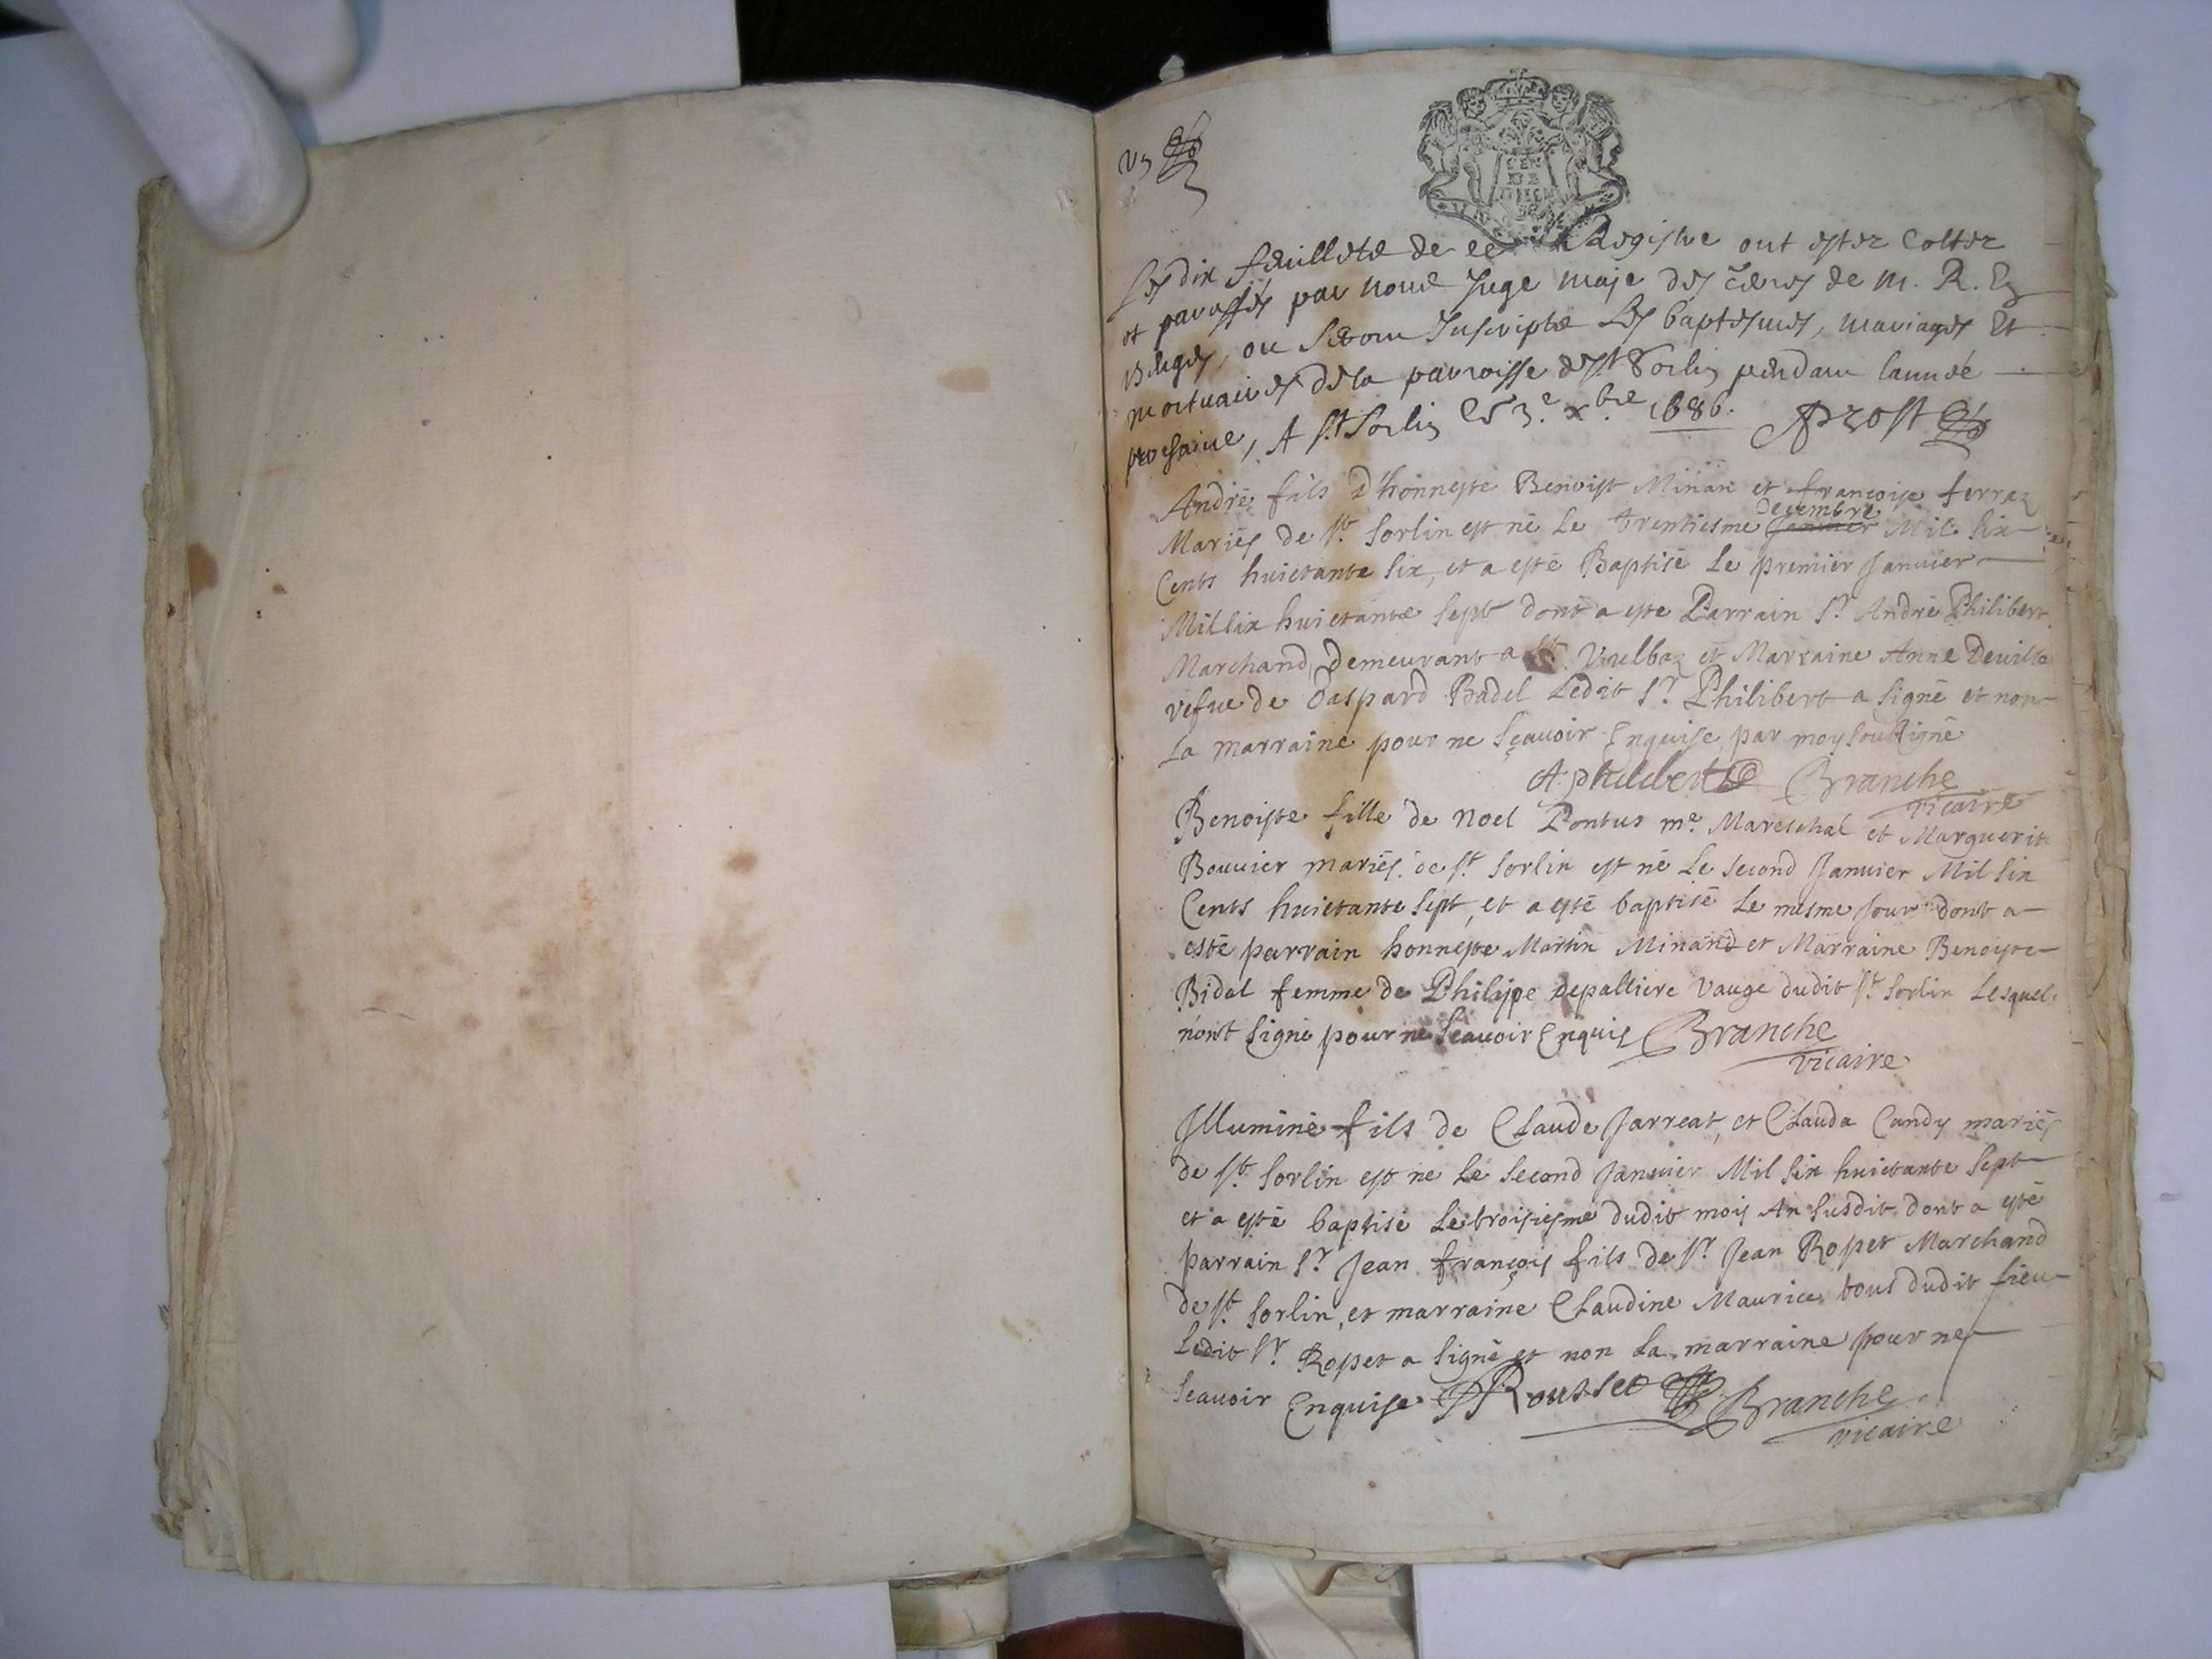 Vn
Les dix feuillets de ce Registre ont ester Cotter
et paraffés par nous Juge maje des terres de M. R. En
Bugey, ou Seront Inscripts Les baptesmes, mariages Et
mortuaires de la parroisse de St Sorlin pendant lannée
prochaine, A St Sorlin Ce 3e xbre 1686. Prost
André fils d'honneste Benoist Minan et françoise ferraz
Mariés de St Sorlin est né Le trentiesme decembre Mil Six
Cents huictante Six, et a esté Baptisé Le premier Janvier
Mil six huictante Sept dont a este Parrain Sr. André Philibert
Marchand Demeurant a St. Vulbaz et Marraine Anne Deville
vefue de Gaspard Badel Ledit Sr. Philibert a Signé et non
La marraine pour ne Sçauoir Enquise par moy Soussigné
A philibert Branche
vicaire
Benoiste fille de Noel Pontus me. Mareschal et Marguerite
Bouuier mariés de St Sorlin est né Le Second Januier Mil Six
Cents huictante Sept, et a esté baptisé Le mesme Jour dont a
esté parrain honneste Martin Minand et Marraine Benoiste
Bidal femme de Philippe depalliere dudit St Sorlin Lesquels
n'ont Signé pour ne Scauoir Enquis Branche
vicaire
Illuminé fils de Claude Jarreat, et Clauda Candy mariés
de St Sorlin est né Le Second Januier Mil Six huictante Sept
et a esté baptisé Le troisiesme dudit mois An Susdit dont a esté
parrain Sr Jean françois fils de Sr Jean Rosset Marchand
de St Sorlin, et marraine Claudine Maurice tous dudit Lieu
Ledit Sr Rosset a Signé et non La marraine pour ne
Scauoir Enquise JF Rousset Branche
vicaire